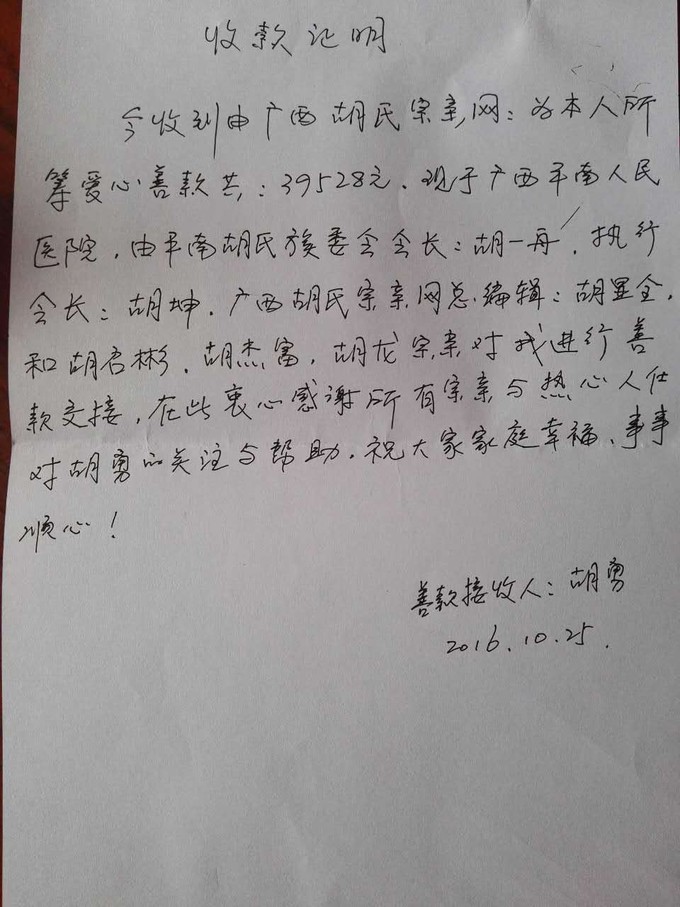 收款证明
今收到由广西胡氏宗亲网：为本人所
筹爱心善款共：39528元．现于广西平南人民
医院，由平南胡氏族委会会长：胡一舟．执行
会长：胡坤．广西胡氏宗亲网总编辑：胡显全，
和胡启彬．胡杰富，胡龙宗亲对我进行善
款交接，在此衷心感谢所有宗亲与热心人仕
对胡勇的关注与帮助．祝大家家庭幸福、事事
顺心！
善款接收人：胡勇
2016.10.25.